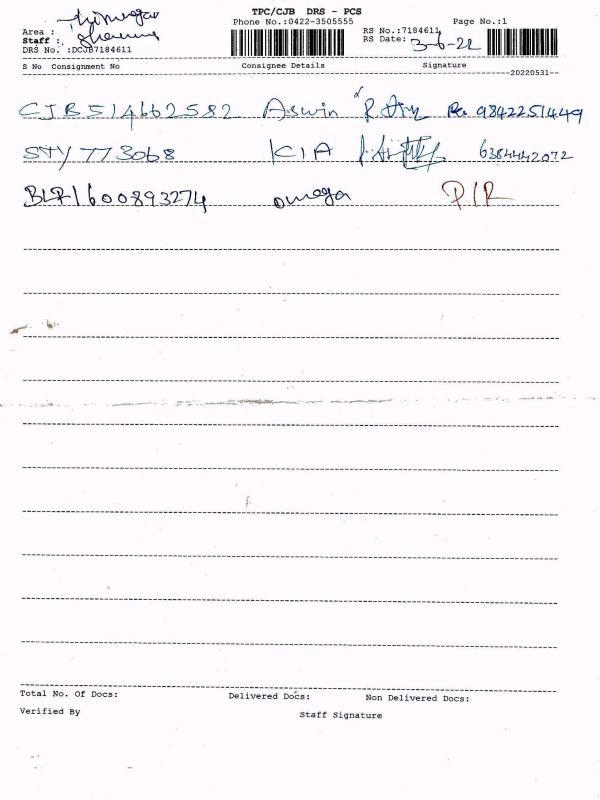 TPC/CJB DRS - PCS
Phone No.:0422-3505555 Page No.:1
Area :
Staff :
RS No.:7184611
RS Date: 3-6-22
DRS No. :DCJB7184611
S No Consignment No Consignee Details Signature
20220531
CJB514662582 Aswin 9842251449
STY 773068 KIA 6384442072
BLR1600893274 omega P/R
Total No. Of Docs: Delivered Docs: Non Delivered Docs:
Verified By Staff Signature